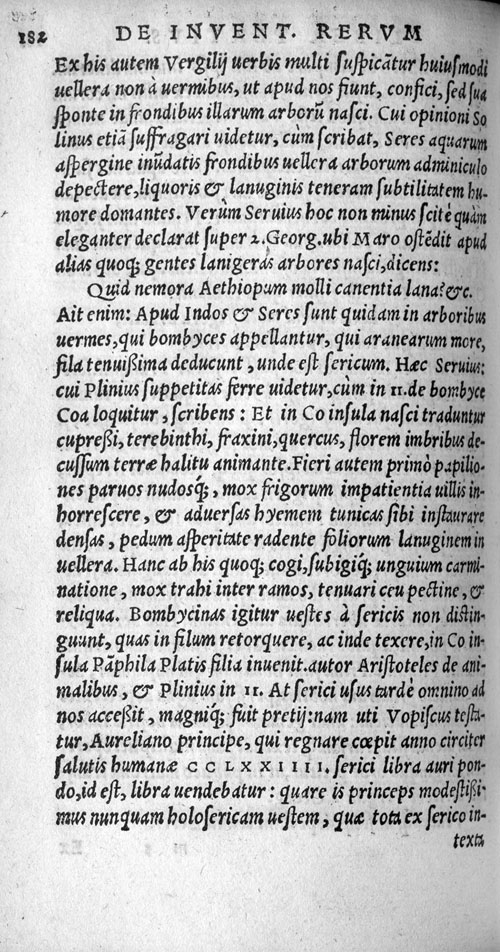 182 DE INVENT. RERVM
Ex his autem Vergilij uerbis multi suspicãtur huiusmodi
uellera non à uermibus, ut apud nos fiunt, confici, sed sua
sponte in frondibus illarum arborũ nasci. Cui opinioni So
linus etiã suffragari uidetur, cùm scribat, Seres aquarum
aspergine inũdatis frondibus uellera arborum adminiculo
depectere, liquoris & lanuginis teneram subtilitatem hu-
more domantes. Verùm Seruius hoc non minus scitè quàm
eleganter declarat super 2. Georg. ubi Maro ostẽdit apud
alias quoq; gentes lanigeras arbores nasci, dicens:
Quid nemora Aethiopum molli canentia lana? &c.
Ait enim: Apud Indos & Seres sunt quidam in arboribus
uermes, qui bombyces appellantur, qui aranearum more,
fila tenuißima deducunt, unde est sericum. Hæc Seruius:
cui Plinius suppetitas ferre uidetur, cùm in 11. de bombyce
Coa loquitur, scribens: Et in Co insula nasci traduntur
cupreßi, terebinthi, fraxini, quercus, florem imbribus de-
cussum terræ halitu animante. Fieri autem primò papilio-
nes paruos nudosq́;, mox frigorum impatientia uillis in-
horrescere, & aduersas hyemem tunicas sibi instaurare
densas, pedum asperitate radente foliorum lanuginem in
uellera. Hanc ab his quoq; cogi, subigiq́; unguium carmi-
natione, mox trahi inter ramos, tenuari ceu pectine, &
reliqua. Bombycinas igitur uestes à sericis non distin-
guunt, quas in filum retorquere, ac inde texere, in Co in-
sula Pãphila Platis filia inuenit. autor Aristoteles de ani-
malibus, & Plinius in 11. At serici usus tardè omnino ad
nos acceßit, magniq́; fuit pretij: nam uti Vopiscus testa-
tur, Aureliano principe, qui regnare cœpit anno circiter
salutis humanæ CCLXXIIII. serici libra auri pon-
do, id est, libra uendebatur: quare is princeps modestißi-
mus nunquam holosericam uestem, quæ tota ex serico in-
texta